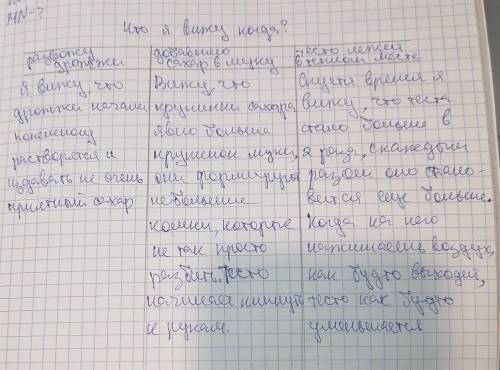 MN-3
Что я вижу когда?
развожу дрожжи
Я вижу что
дрожжи начали
понемногу
растворятся и
издавать не очень
приятный сахар
добавляю
сахар в муку
Вижу, что
крупинки сахара
явно больше
крупинок муки,
они формируют
небольшие
комки, которые
не так просто
разбить. Тесто
начинает липнуть
к рукам.
тесто лежит
в теплом месте
Спустя время я
вижу, что теста
стало больше в
2 раза, с каждым
разом оно стано-
вится еще больше.
Когда на него
нажимаешь воздух,
как будто выходит,
тесто как будто
уменьшается